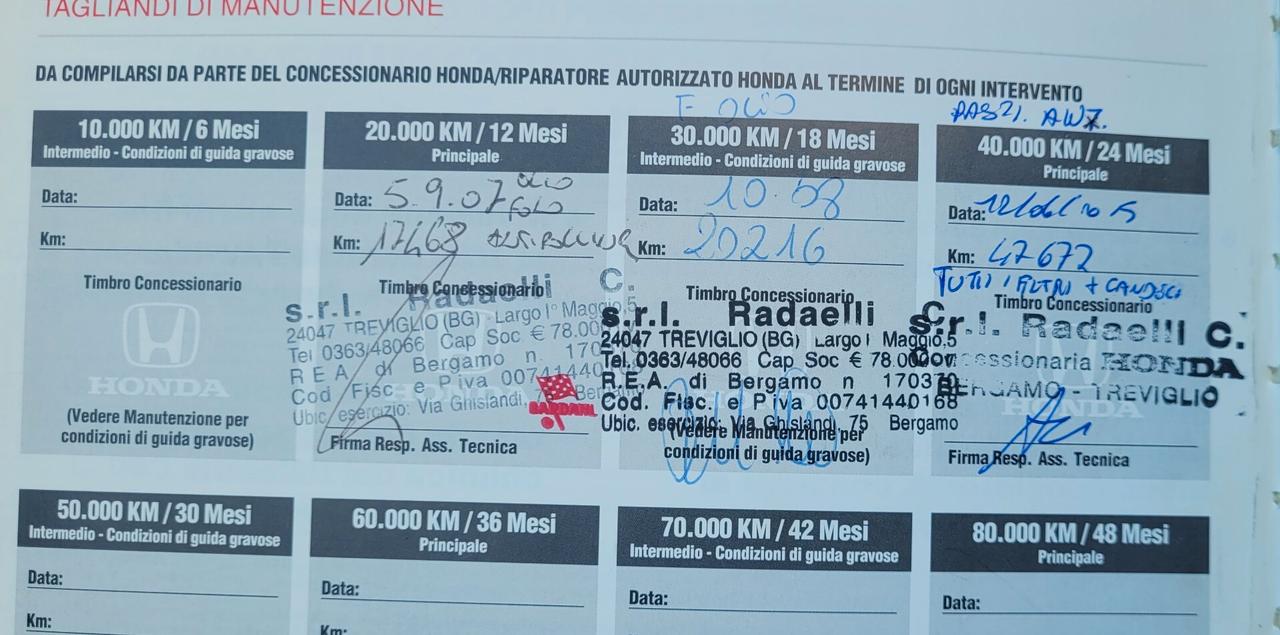 TAGLIANDI DI MANUTENZIONE
DA COMPILARSI DA PARTE DEL CONCESSIONARIO HONDA/RIPARATORE AUTORIZZATO HONDA AL TERMINE DI OGNI INTERVENTO
10.000 KM / 6 Mesi
Intermedio - Condizioni di guida gravose
Data:
Km:
Timbro Concessionario
HONDA
(Vedere Manutenzione per
condizioni di guida gravose)
20.000 KM / 12 Mesi
Principale
Data: 5.9.07 OLIO
Km: 17468
Timbro Concessionario
s.r.l. Radaelli C.
24047 TREVIGLIO (BG) - Largo I° Maggio,5
Tel 0363/48066 Cap Soc € 78.00
R E A di Bergamo n. 170
Cod Fisc. e P.iva 00741440
Ubic. esercizio: Via Ghislandi, 7 Bergam
BARDAHL
Firma Resp. Ass. Tecnica
F OLIO
30.000 KM / 18 Mesi
Intermedio - Condizioni di guida gravose
Data: 10.08
Km: 20216
Timbro Concessionario
s.r.l. Radaelli C.
24047 TREVIGLIO (BG) Largo I Maggio,5
Tel.0363/48066 Cap Soc € 78.000
R.E.A. di Bergamo n 170370
Cod. Fisc. e P.iva 00741440168
Ubic. esercizio: Via Ghislandi, 75 Bergamo
(Vedere Manutenzione per
condizioni di guida gravose)
40.000 KM / 24 Mesi
Principale
Data:
Km: 47672
TUTTI I FILTRI + CANDELE
Timbro Concessionario
s.r.l. Radaelli C.
Concessionaria HONDA
BERGAMO - TREVIGLIO
Firma Resp. Ass. Tecnica
50.000 KM / 30 Mesi
Intermedio - Condizioni di guida gravose
Data:
Km:
60.000 KM / 36 Mesi
Principale
Data:
Km:
70.000 KM / 42 Mesi
Intermedio - Condizioni di guida gravose
Data:
80.000 KM / 48 Mesi
Principale
Data: